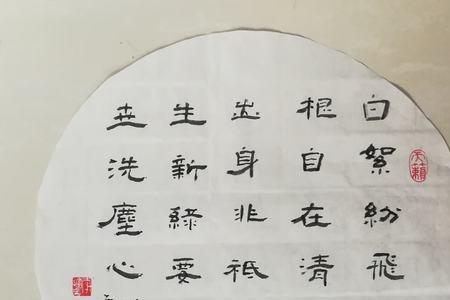 白絮紛飛
根自在清
出身非祇
生新綠要
世洗塵心
天籟